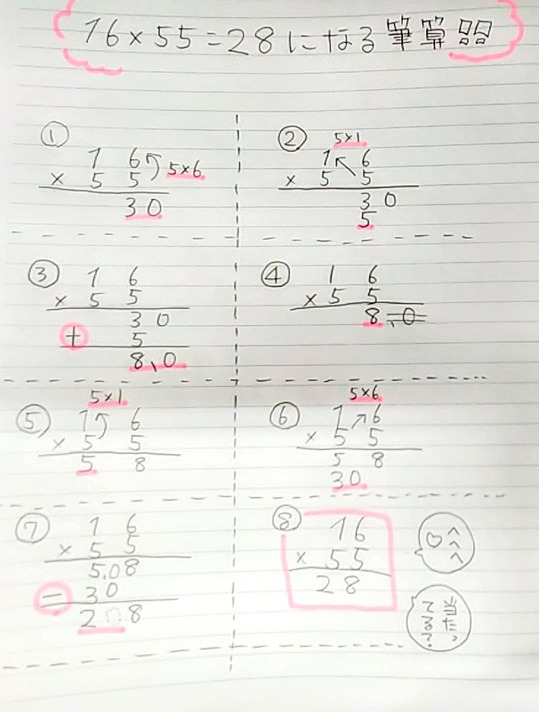 16×55=28になる筆算
①
1 6
× 5 5
5×6
3 0
②
5×1
1 6
× 5 5
3 0
5
③
1 6
× 5 5
3 0
+ 5
8.0
④
1 6
× 5 5
8.0
⑤
5×1
1 6
× 5 5
5 8
⑥
5×6
1 6
× 5 5
5 8
3 0
⑦
1 6
× 5 5
5.08
− 3 0
2 0 8
⑧
16
× 55
28
当たっ
てる?